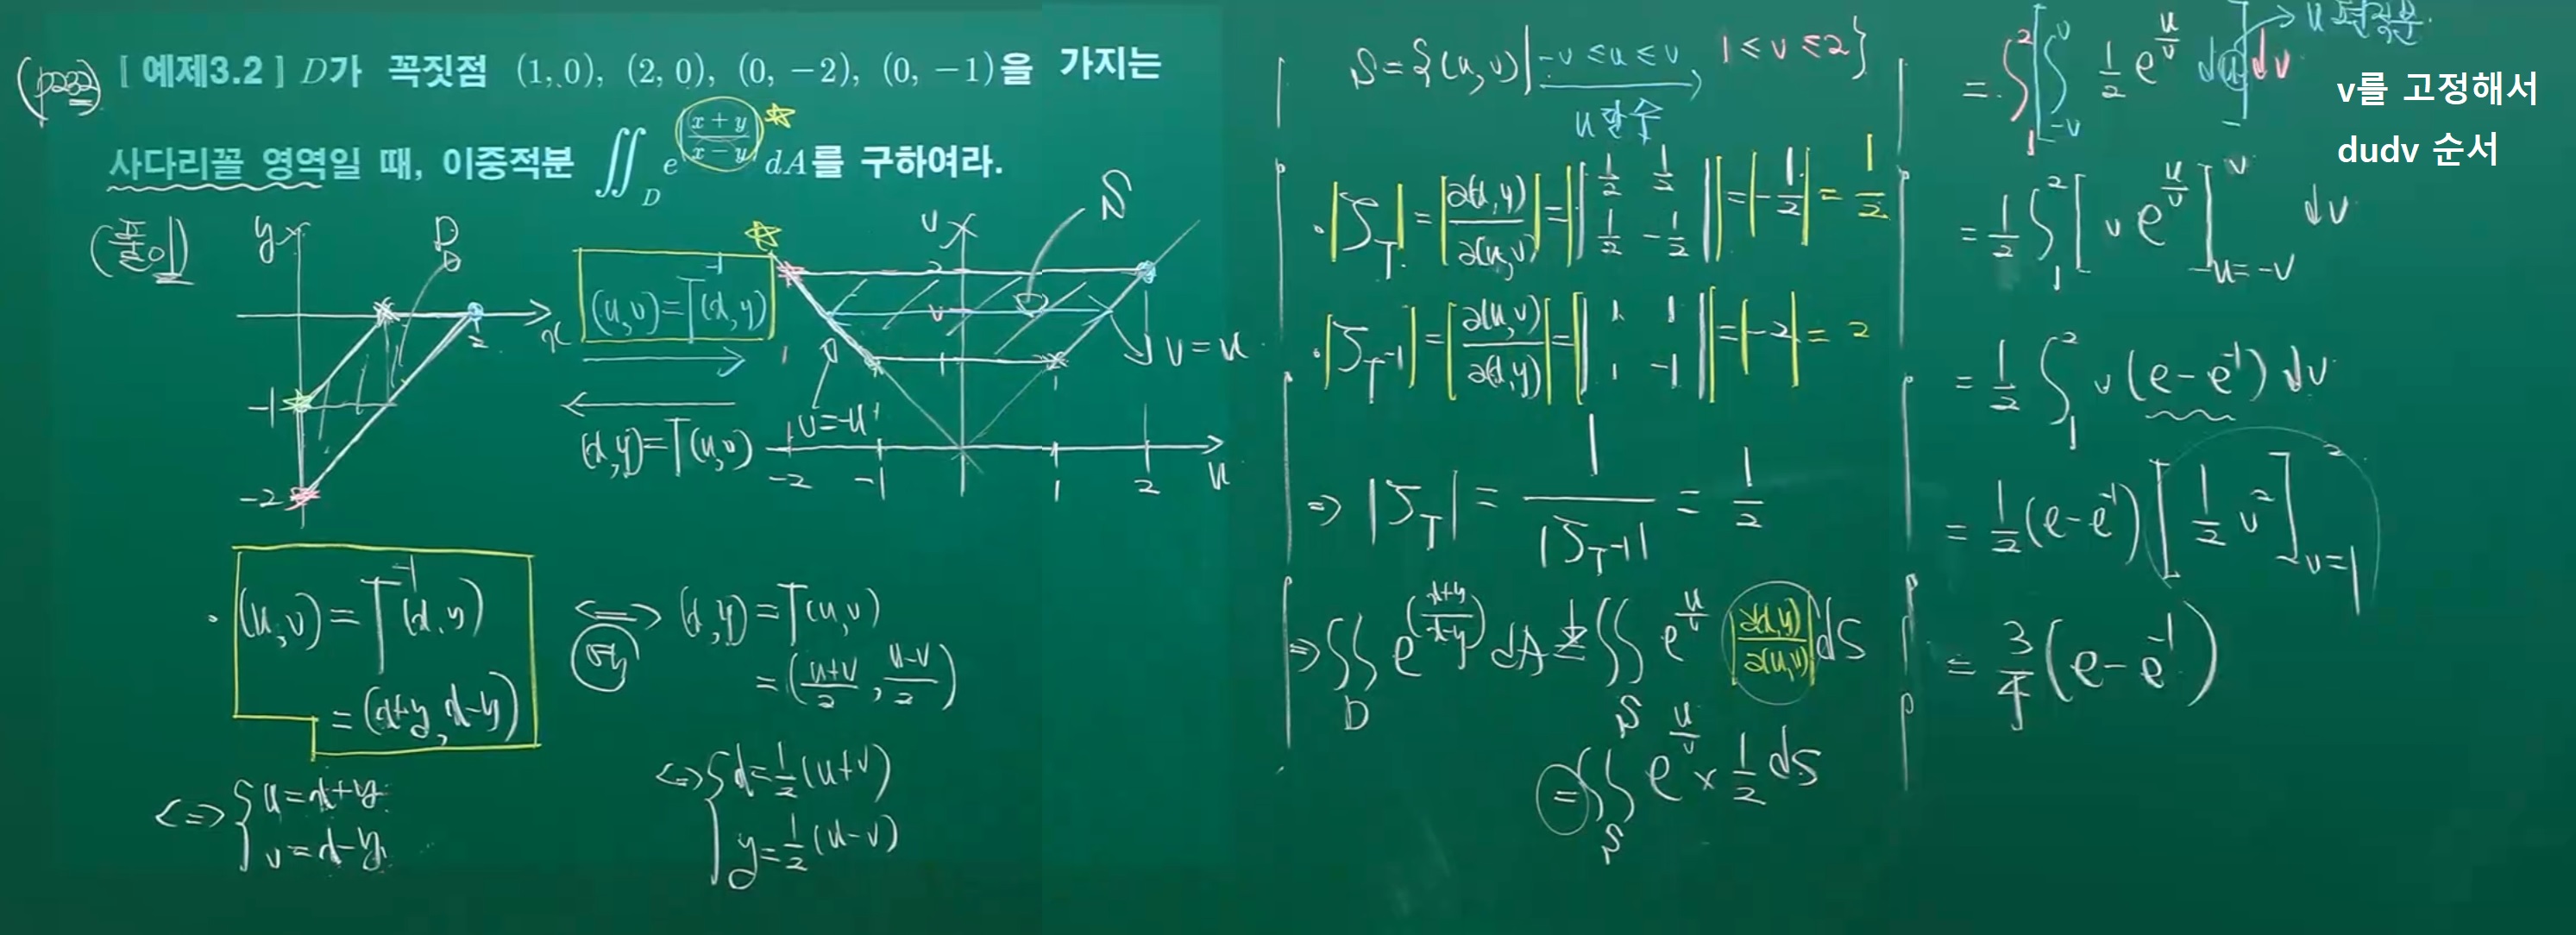 (p232) [예제3.2] D가 꼭짓점 (1, 0), (2, 0), (0, −2), (0, −1)을 가지는
사다리꼴 영역일 때, 이중적분 ∬_D e^((x+y)/(x−y)) dA를 구하여라.
(풀이)
y
D
x
2
-1
-2
(u,v)=T^-1(x,y)
(x,y)=T(u,v)
v
S
2
v
1
1
1
v=u
v=-u
-2 -1 1 2 u
· (u,v)=T^-1(x,y)
=(x+y, x-y)
<=> { u=x+y
v=x-y
<=> (x,y)=T(u,v)
=((u+v)/2, (u-v)/2)
<=> { x=1/2(u+v)
y=1/2(u-v)
S={(u,v)| -v≤u≤v 1≤v≤2}
u 단순
·|J_T|=|∂(x,y)/∂(u,v)|=||1/2 1/2 1/2 -1/2||=|-1/2|=1/2
·|J_T^-1|=|∂(u,v)/∂(x,y)|=||1 1 1 -1||=|-2|=2
=> |J_T|=1/|J_T^-1|=1/2
=> ∬_D e^((x+y)/(x-y)) dA = ∬_S e^(u/v) |∂(x,y)/∂(u,v)| dS
= ∬_S e^(u/v) × 1/2 dS
= ∫_1^2 [∫_-v^v 1/2 e^(u/v) du] dv
u 편적분
v를 고정해서
dudv 순서
= 1/2 ∫_1^2 [v e^(u/v)]_u=-v^v dv
= 1/2 ∫_1^2 v(e-e^-1) dv
= 1/2(e-e^-1) [1/2 v^2]_v=1^2
= 3/4(e-e^-1)